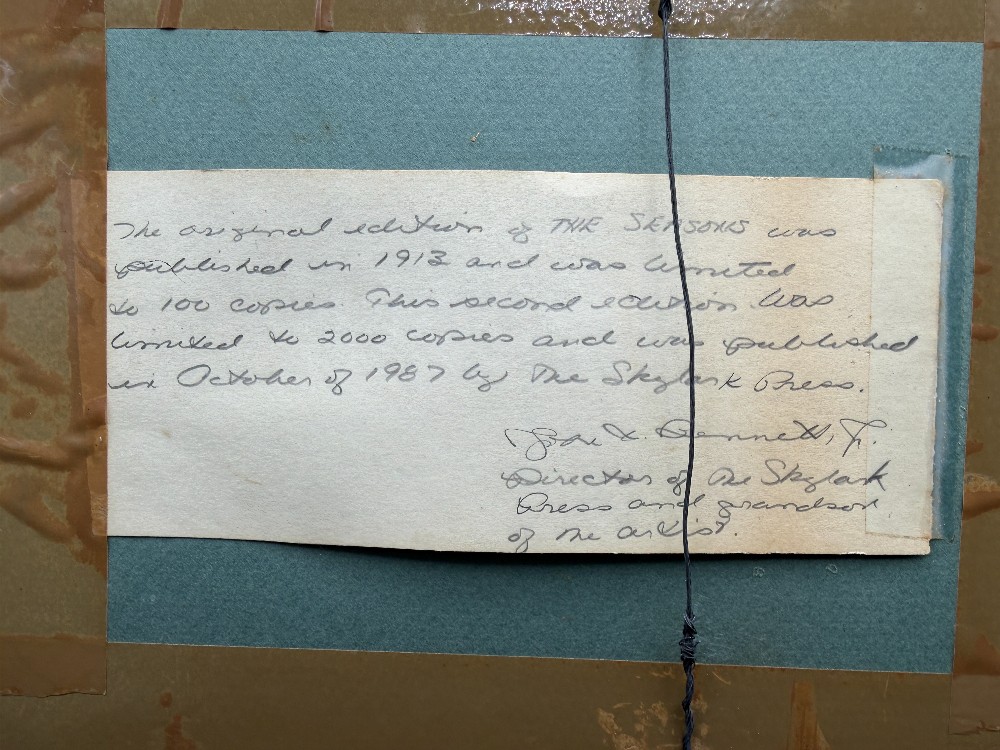 The original edition of THE SEASONS was
published in 1913 and was limited
to 100 copies. This second edition was
limited to 2000 copies and was published
in October of 1987 by The Skylark Press.
Bennett, Jr.
Director of The Skylark
Press and grandson
of the artist.